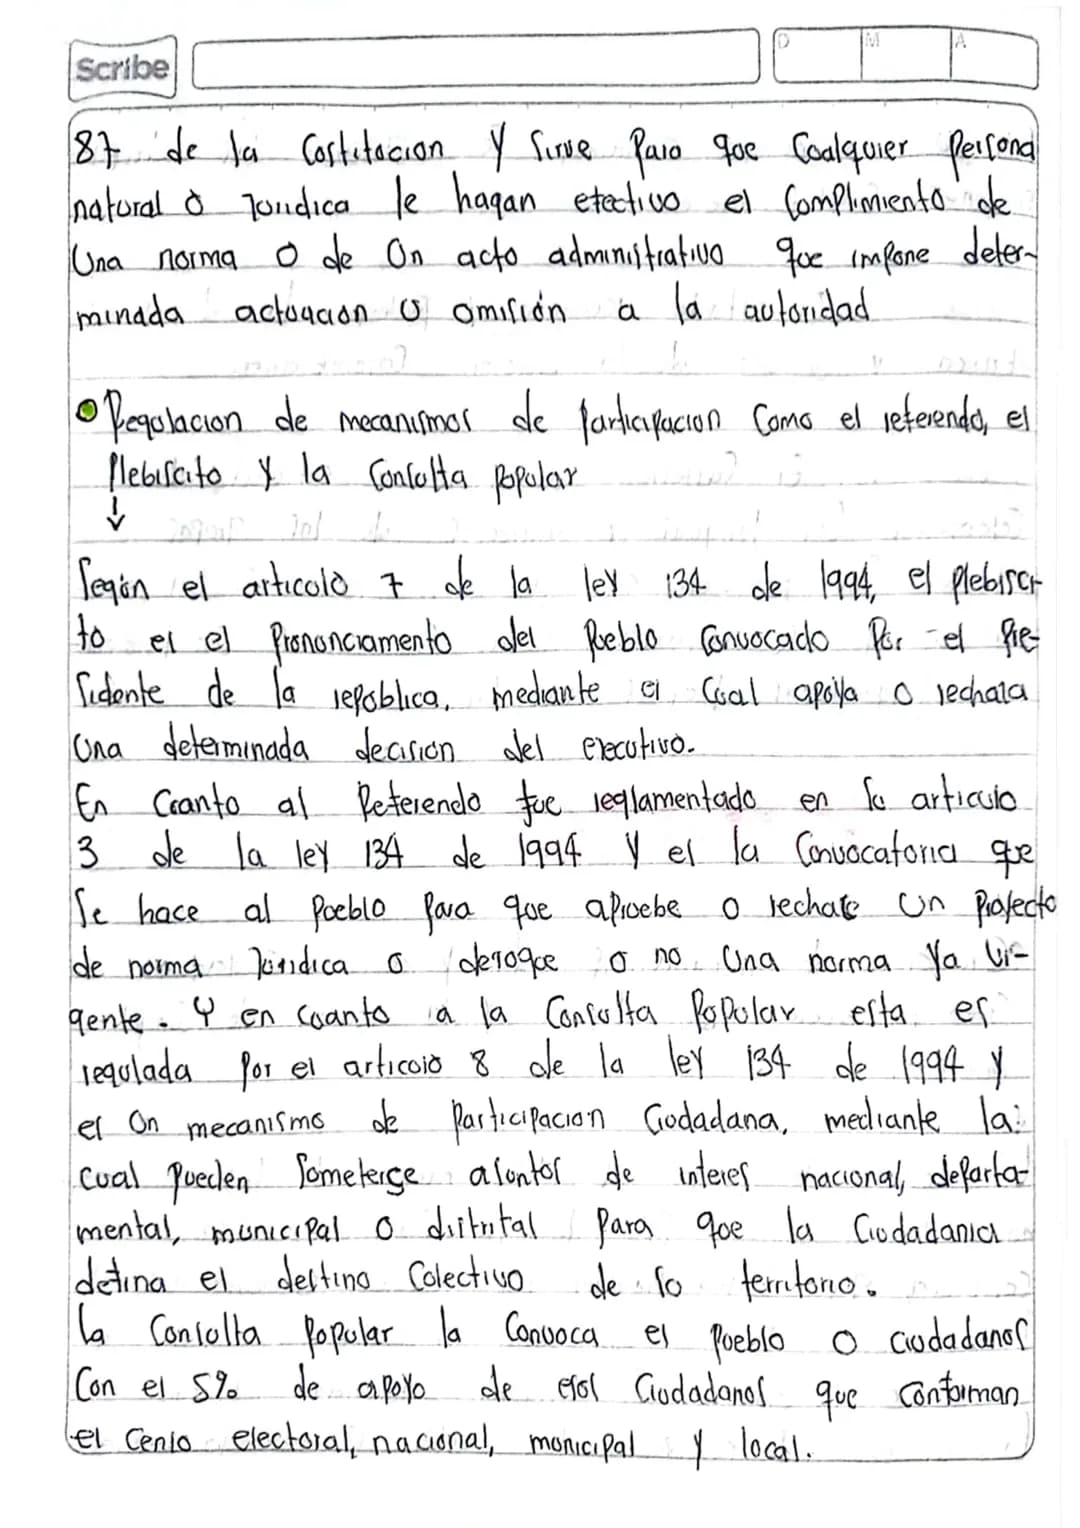 Scribe
D M A
87 de la Costitocion y Sirve Para qoe Coalquier Persona
natural o Joridica le hagan efectivo el Complimiento de
Una norma o de On acto administrativo qoe impone deter-
minada actuacion u omisión a la autoridad
Regolacion de mecanismos de participacion Como el referendo, el
Plebiscito y la Consolta Popolar
↓
Segón el articolo 7 de la ley 134 de 1994, el plebisci-
to es el Prononciamento del Poeblo Convocado Por el Pre-
Sidente de la repoblica, mediante el Coal apoya o rechaza
Una determinada decision del ejecotivo.
En Coanto al Referendo foe reglamentado en So articulo
3 de la ley 134 de 1994 y es la Convocatoria que
Se hace al Poeblo Para que aproebe o rechace Un Proyecto
de norma Joridica o deroqoe o no Una norma Ya Vi-
gente. Y en coanto a la Consolta Popolar esta es
regulada Por el articolo 8 de la ley 134 de 1994 y
es On mecanismo de Participacion Ciodadana, mediante la
cual pueden Someterse asontos de interes nacional, departa-
mental, municipal o distrital Para qoe la Ciodadania
defina el destino Colectivo de So territorio.
La Consolta Popolar la Convoca el Poeblo o ciodadanos
Con el 5% de apoyo de esos Ciodadanos que conforman
el Censo electoral, nacional, monicipal y local.